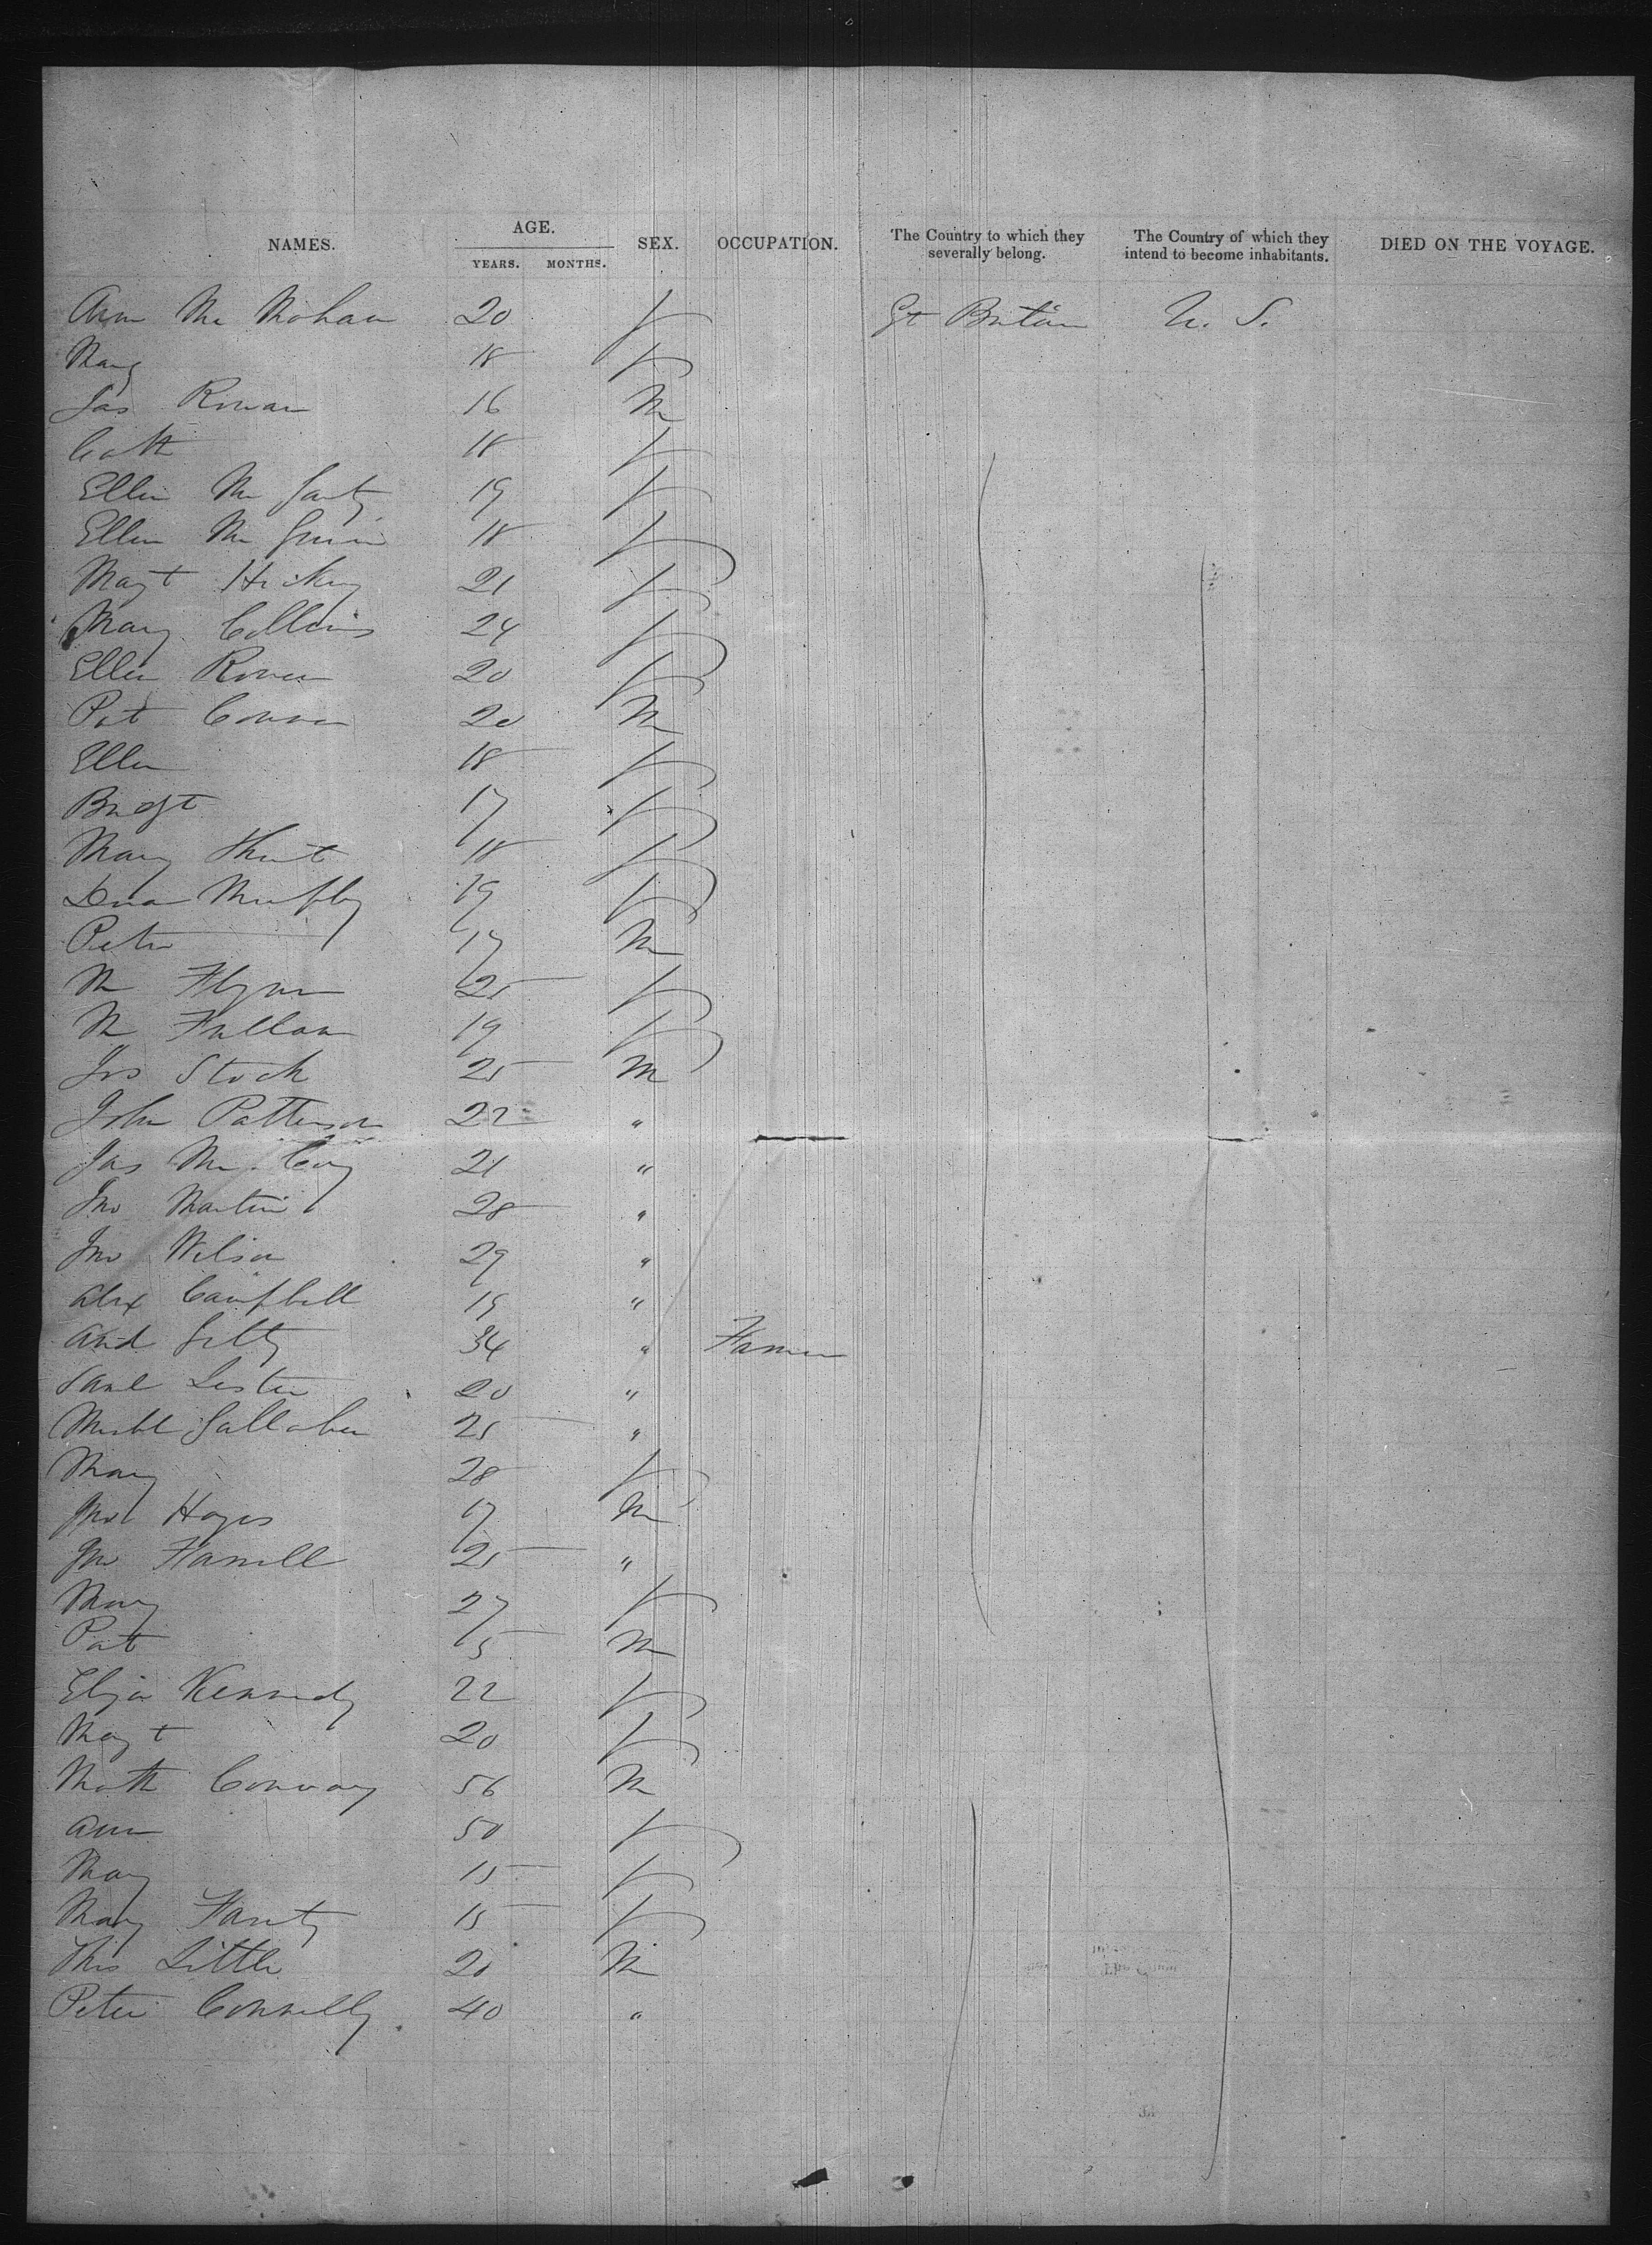 NAMES. AGE. YEARS. MONTHS. SEX. OCCUPATION. The Country to which they severally belong. The Country of which they intend to become inhabitants. DIED ON THE VOYAGE.
Ann Mc Mohan 20 f Gt Britain U. S.
Mary 18 f
Jas Rowan 16 M
Cath 18 f
Ellen Mc Ganty 19 f
Ellen Mc 18 f
Magt Hickey 21 f
Mary Collins 24 f
Ellen Rowen 20 f
Pat Connor 20 M
Ellen 18 f
Bridgt 17 f
Mary Hunt 18 f
Murphy 19 f
Peter 17 M
M Flynn 25 f
M Fallon 19 f
Jos Stock 25 M
John Patterson 22 "
Jas Mc Coy 21 "
Jno Martin 28 "
Jno Wilson 29 "
Alex Campbell 19 "
And Gilty 34 " Farmer
Saml Lester 20 "
Michl Gallaher 25 "
Mary 28 f
Jno Hayes 17 M
Jno Farrell 25 "
Mary 27 f
Pat 5 M
Eliza Kennedy 22 f
Magt 20 f
Math Conway 56 M
Ann 50 f
Mary 15 f
Mary 15 f
Ths Little 20 M
Peter Connelly 40 "